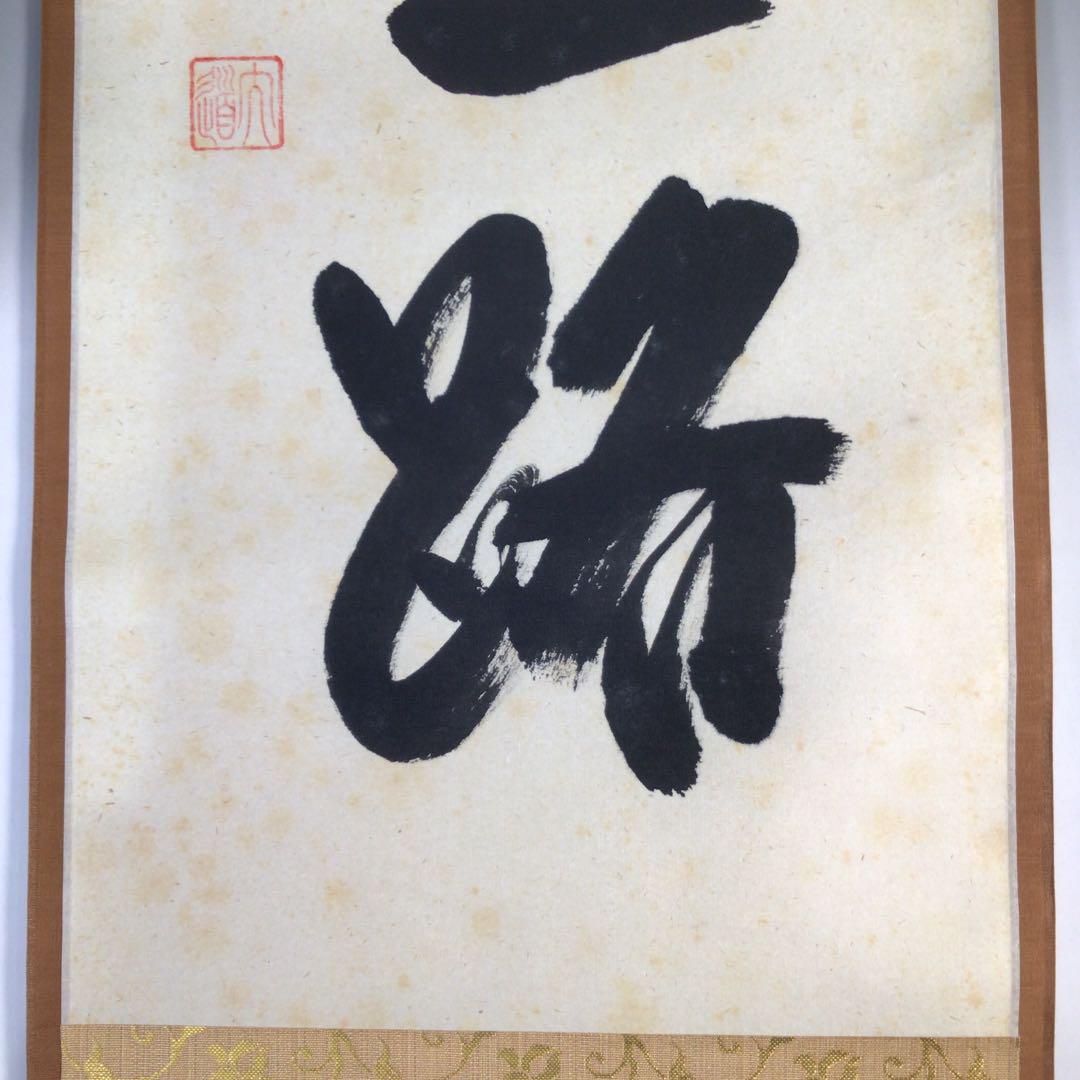 一路
大道